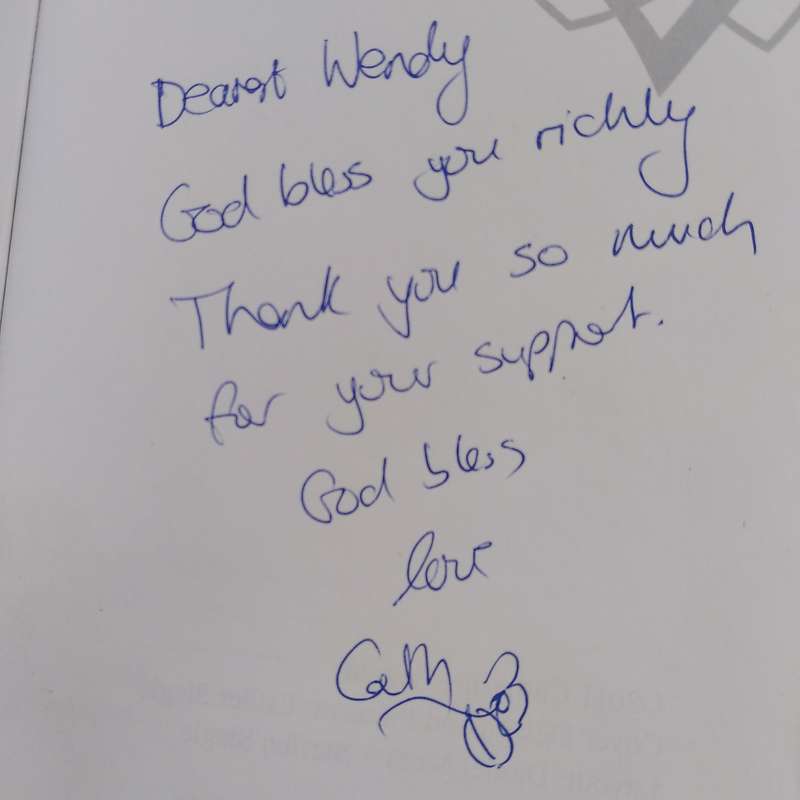 Dearest Wendy
God bless you richly
Thank you so much
for your support.
God bless
love
Cath